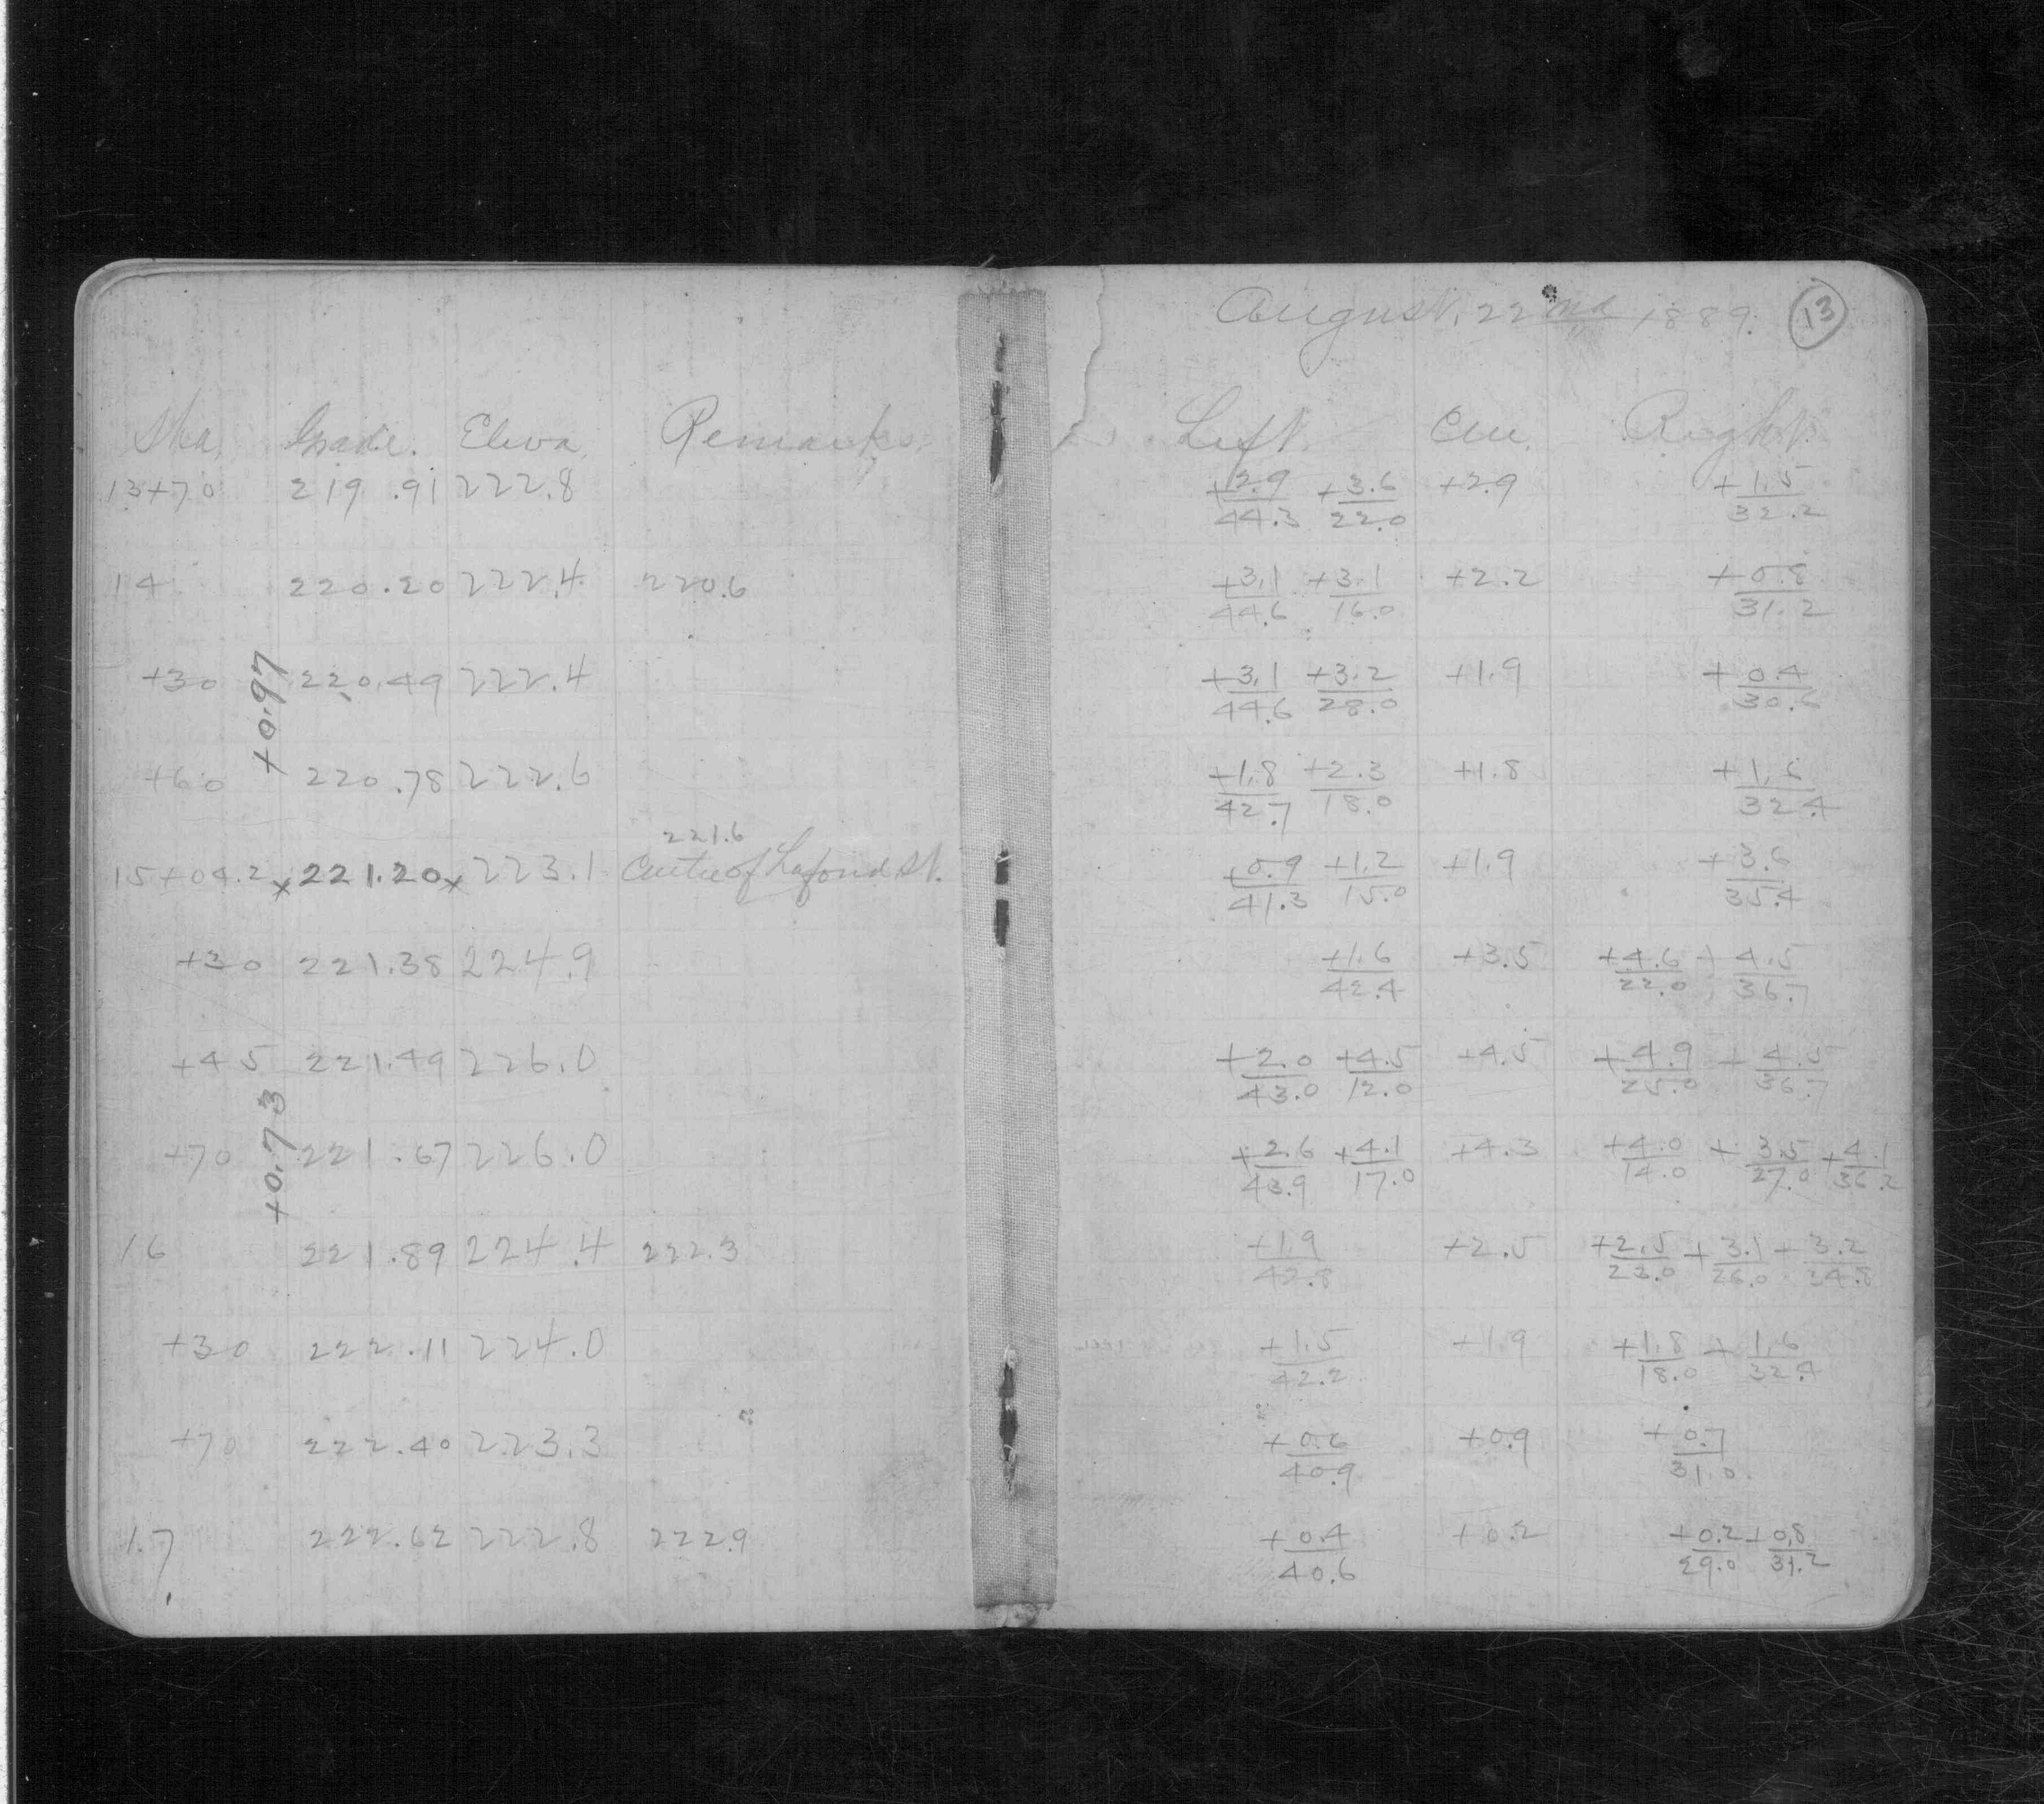 August. 22nd 1889. 13
Sta. Grade. Eleva. Remarks. Left. Cen. Right.
13+70 219.91 222.8 +2.9/44.3 +3.6/22.0 +2.9 +1.5/32.2
14 220.20 222.4 220.6 +3.1/44.6 +3.1/16.0 +2.2 +0.8/31.2
+30 220.49 222.4 +3.1/44.6 +3.2/28.0 +1.9 +0.4/30.6
+0.97
+60 220.78 222.6 +1.8/42.7 +2.3/18.0 +1.8 +1.6/32.4
221.6
15+04.2 x 221.20 x 223.1 Centre of Lafond St. +0.9/41.3 +1.2/15.0 +1.9 +3.6/35.4
+30 221.38 224.9 +1.6/42.4 +3.5 +4.6/22.0 +4.5/36.7
+45 221.49 226.0 +2.0/43.0 +4.5/12.0 +4.5 +4.9/25.0 +4.5/36.7
+0.73
+70 221.67 226.0 +2.6/43.9 +4.1/17.0 +4.3 +4.0/14.0 +3.5/27.0 +4.1/36.2
16 221.89 224.4 222.3 +1.9/42.8 +2.5 +2.5/23.0 +3.1/26.0 +3.2/34.8
+30 222.11 224.0 +1.5/42.2 +1.9 +1.8/18.0 +1.6/32.4
+70 222.40 223.3 +0.6/40.9 +0.9 +0.7/31.0
17 222.62 222.8 222.9 +0.4/40.6 +0.2 +0.2/29.0 +0.8/31.2